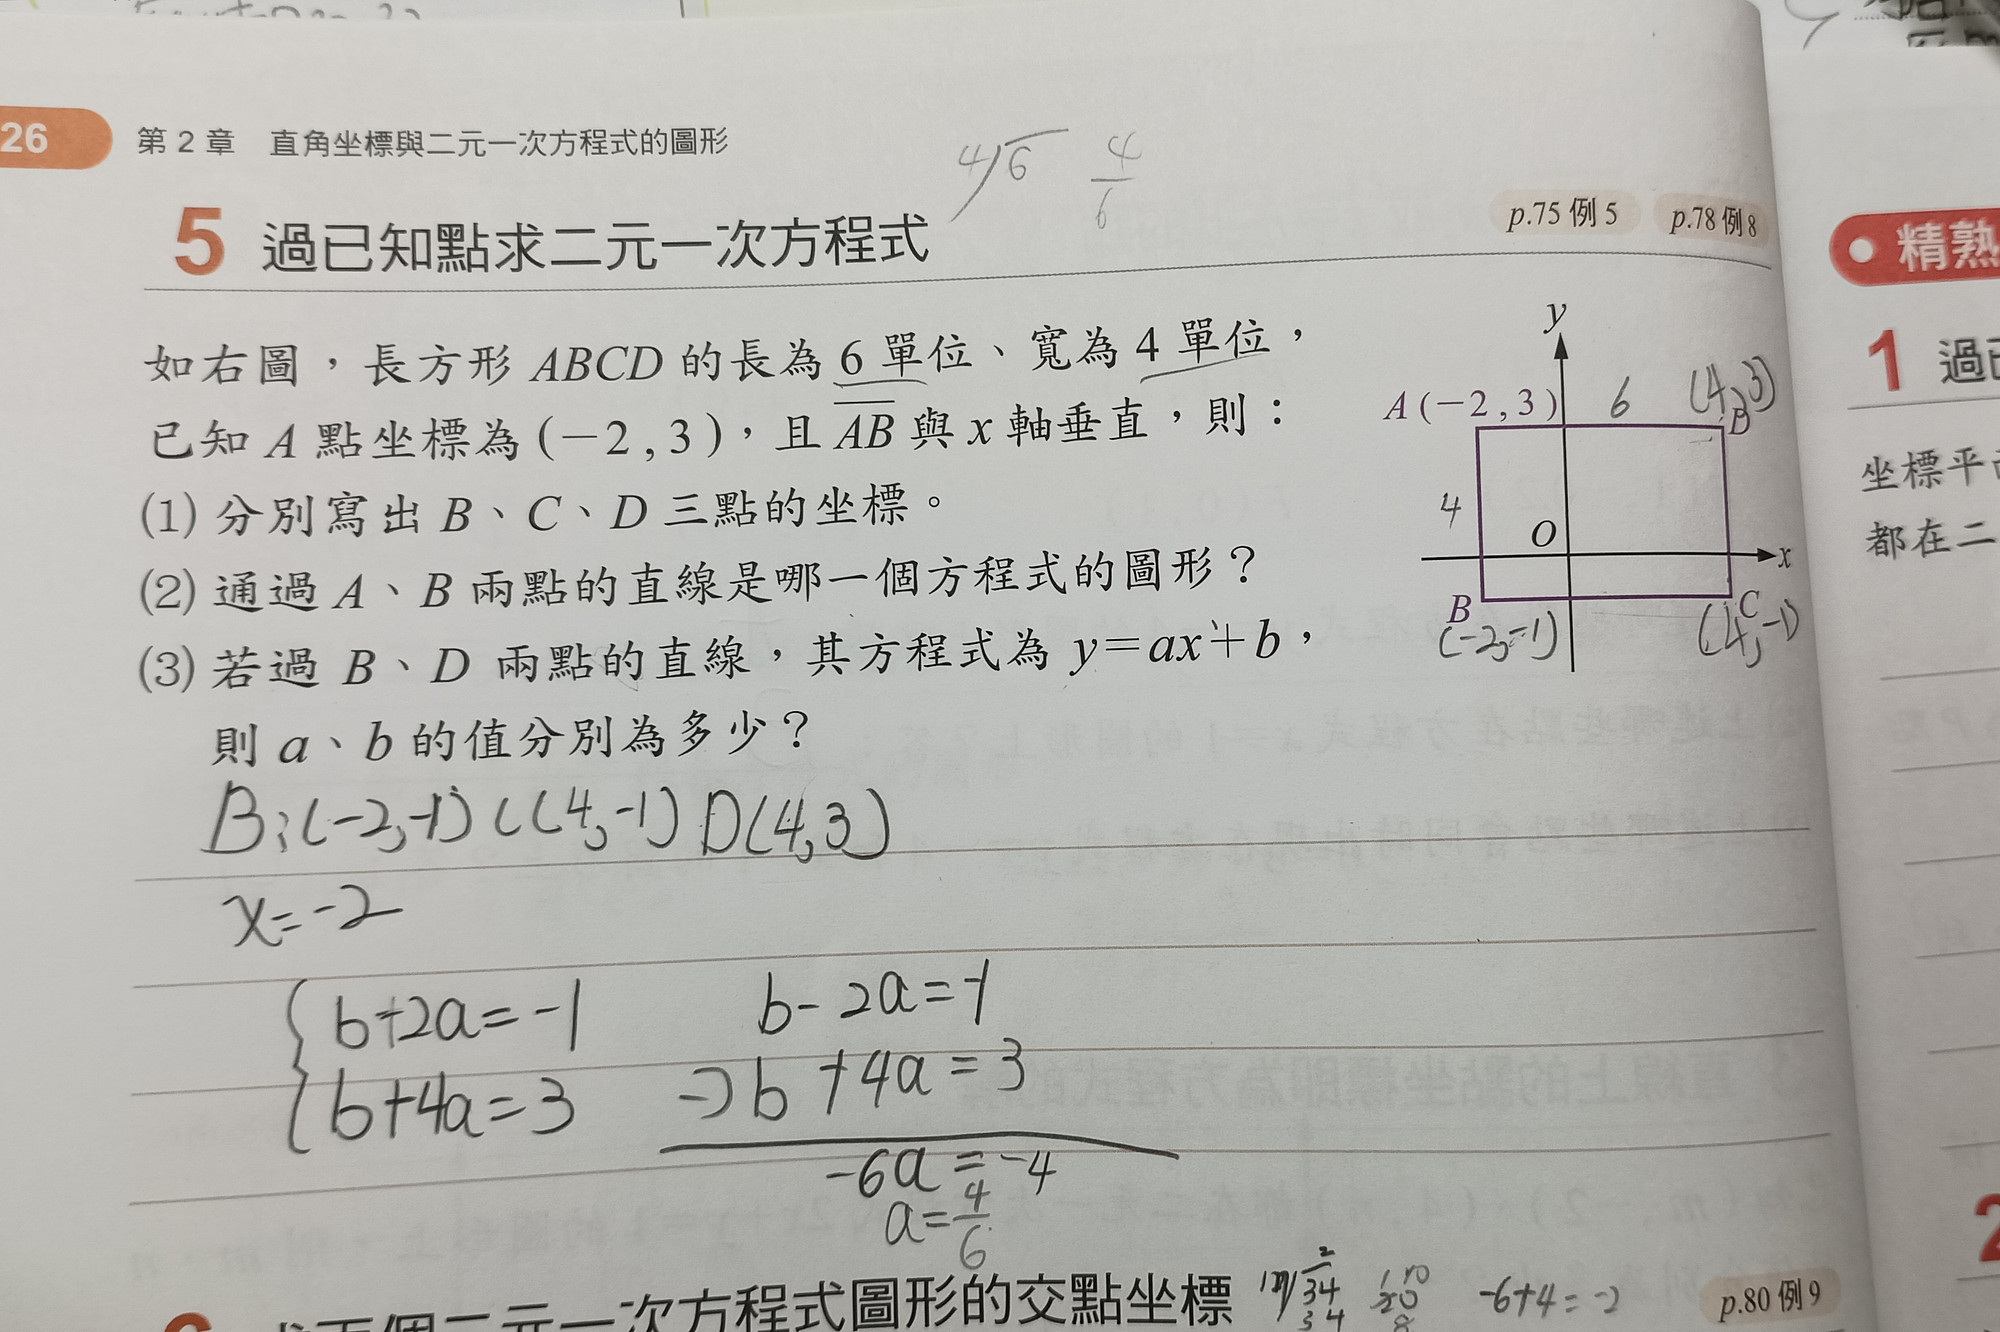 26 第 2 章 直角坐標與二元一次方程式的圖形
4 6 4/6
5 過已知點求二元一次方程式 p.75 例 5 p.78 例 8
如右圖，長方形 ABCD 的長為 6 單位、寬為 4 單位，
已知 A 點坐標為 (−2 , 3 )，且 AB 與 x 軸垂直，則：
(1) 分別寫出 B、C、D 三點的坐標。
(2) 通過 A、B 兩點的直線是哪一個方程式的圖形？
(3) 若過 B、D 兩點的直線，其方程式為 y=ax+b，
則 a、b 的值分別為多少？
y
A (−2 , 3 ) 6 (4,3)
D
4
O
x
B C
(-2,-1) (4,-1)
B:(-2,-1) C(4,-1) D(4,3)
x=-2
b+2a=-1 b-2a=-1
b+4a=3 -) b+4a=3
-6a=-4
a=4/6
二元一次方程式圖形的交點坐標 p.80 例 9
-6+4=-2
精熟
1 過已
坐標平
都在二
2